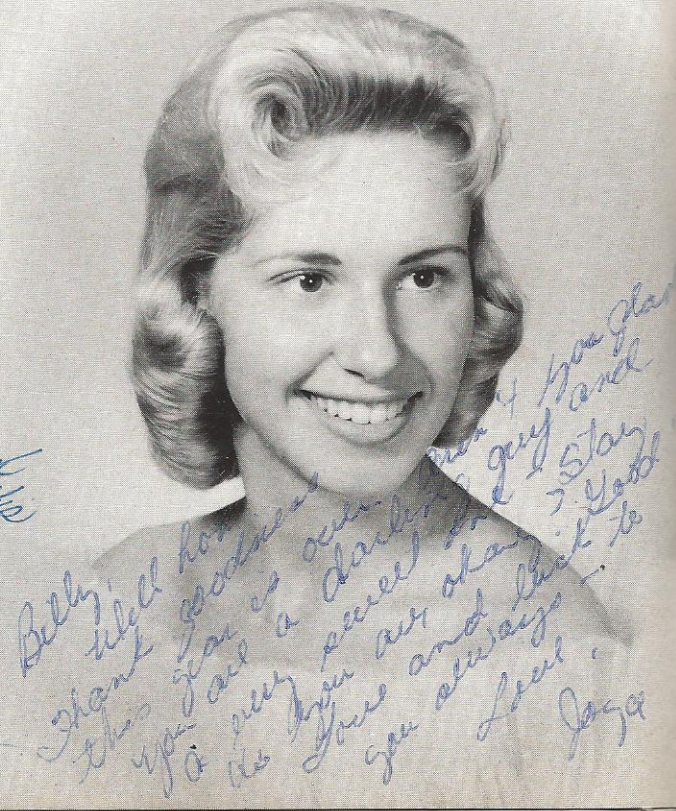 Billy,
Well hon
Thank goodness
this year is over. Aren't you glad
you are a darling guy and
a very sweet one & Stay
as you are, okay?
Love and luck to
you always —
Love,